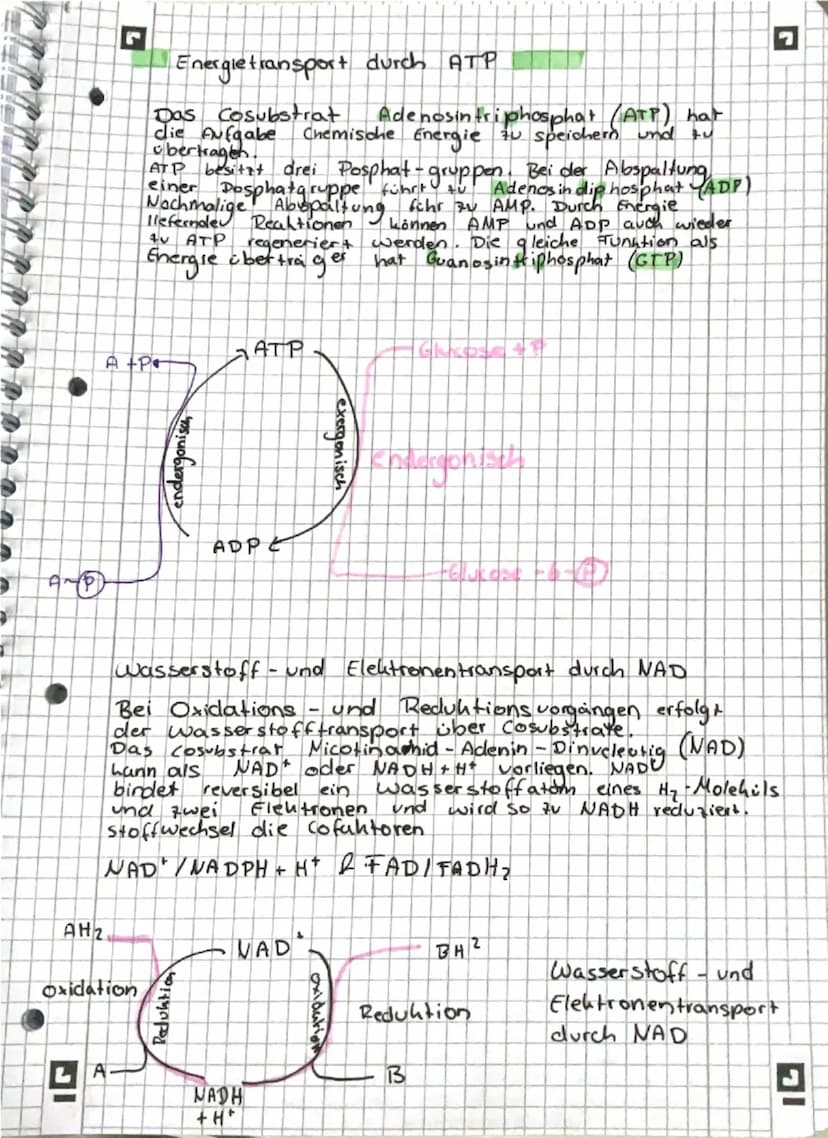 Energietransport durch ATP
Das Cosubstrat Adenosintriphosphat (ATP) hat
die Aufgabe Chemische Energie zu speichern und zu
übertragen.
ATP besitzt drei Posphat-gruppen. Bei der Abspaltung
einer Posphatgruppe führt zu Adenosindiphosphat (ADP)
Nochmalige Abspaltung führ zu AMP. Durch Energie
liefernde Reaktionen können AMP und ADP auch wieder
zu ATP regeneriert werden. Die gleiche Funktion als
Energie überträger hat Guanosintriphosphat (GTP)
ATP
A+P
Glucose + P
endergonisch
exergonisch
Endergonisch
ADP
A~P
Glucose -6-P
Wasserstoff - und Elektronentransport durch NAD
Bei Oxidations - und Reduktionsvorgängen erfolgt
der Wasserstofftransport über Cosubstrate.
Das Cosubstrat Nicotinamid - Adenin -
(NAD)
kann als NAD⁺ oder NADH + H⁺ vorliegen. NAD
bindet reversibel ein Wasserstoffatom eines H₂-Moleküls
und zwei Elektronen und wird so zu NADH reduziert.
Stoffwechsel die Cofaktoren
NAD⁺/NADPH + H⁺ & FAD/FADH₂
AH₂
NAD⁺
BH²
Oxidation
Reduktion
Oxidation
Reduktion
A
B
NADH
+ H⁺
Wasserstoff - und
Elektronentransport
durch NAD